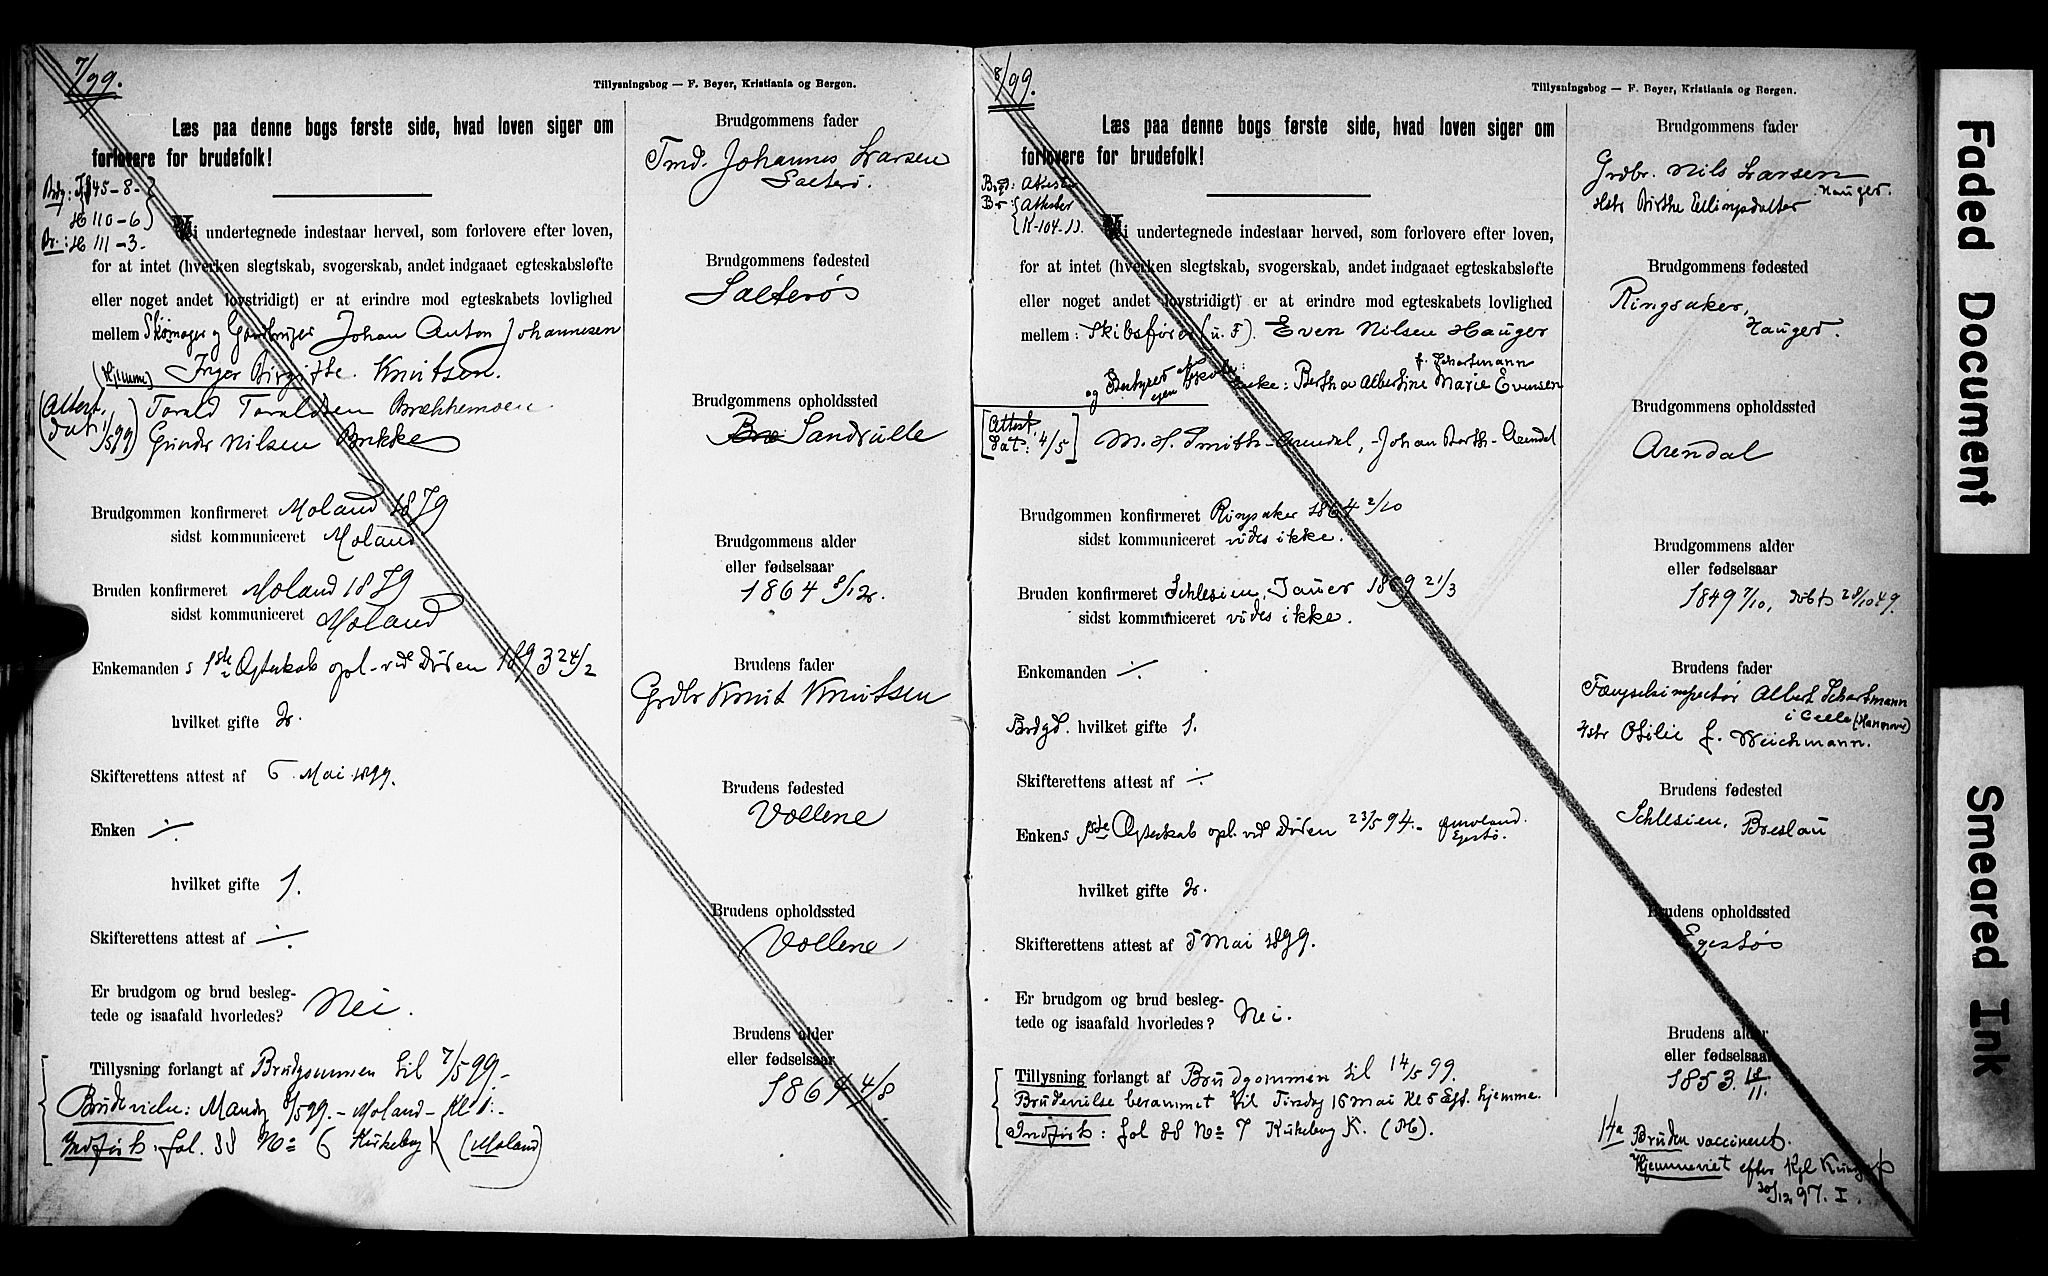 7/99.
Tillysningsbog — F. Beyer, Kristiania og Bergen.
Læs paa denne bogs første side, hvad loven siger om
forlovere for brudefolk!
Brdg: J 145-8-
H 110-6
Br.: H 111-3-
Vi undertegnede indestaar herved, som forlovere efter loven,
for at intet (hverken slegtskab, svogerskab, andet indgaaet egteskabsløfte
eller noget andet lovstridigt) er at erindre mod egteskabets lovlighed
mellem Skomager og Gaardbruger Johan Anton Johannesen
(Hjemme) Inger Birgitte Knutsen.
(Attest. dat. 1/5 99) Torald Toraldsen Brækkemoen
Gunder Nilsen Brekke
Brudgommen konfirmeret Moland 1879
sidst kommuniceret Moland
Bruden konfirmeret Moland 1879
sidst kommuniceret Moland
Enkemandens 1ste Ægteskab opl. ved Døden 1893 24/2
hvilket gifte 2.
Skifterettens attest af 6 Mai 1899.
Enken ⁒
hvilket gifte 1.
Skifterettens attest af ⁒
Er brudgom og brud besleg-
tede og isaafald hvorledes? Nei.
Tillysning forlangt af Brudgommen til 7/5 99-
Brudevielse: Mandg 8/5 99.- Moland - Kl 1:-
Indført: fol. 88 No 6 Kirkebog K (Moland)
Brudgommens fader
Tmd. Johannes Larsen
Salterø.
Brudgommens fødested
Salterøs
Brudgommens opholdssted
Bræ Sandrulle
Brudgommens alder
eller fødselsaar
1864 8/12.
Brudens fader
Grdbr Knut Knutsen
Brudens fødested
Vollene
Brudens opholdssted
Vollene
Brudens alder
eller fødselsaar
1864 4/8
8/99.
Tillysningsbog — F. Beyer, Kristiania og Bergen.
Læs paa denne bogs første side, hvad loven siger om
forlovere for brudefolk!
Brgd: Attester
Br: Attester
K-104-11.
Vi undertegnede indestaar herved, som forlovere efter loven,
for at intet (hverken slegtskab, svogerskab, andet indgaaet egteskabsløfte
eller noget andet lovstridigt) er at erindre mod egteskabets lovlighed
mellem: Skibsfører (u. F). Even Nilsen Hauger
f. Schartmann
og Bestyrer af egen Enke: Bertha Albertine Marie Evensen
[Attest. Dat: 4/5] M. H. Smith-Arendal, -Johan Barth-Arendal
Brudgommen konfirmeret Ringsaker 1864 2/10
sidst kommuniceret vides ikke.
Bruden konfirmeret Schlesien, Jauer 1869 21/3
sidst kommuniceret vides ikke.
Enkemanden ⁒
Brdgd. hvilket gifte 1.
Skifterettens attest af ⁒
Enkens 1ste Ægteskab opl. ved Døden 23/5 94.- Ømoland. Egestø.
hvilket gifte 2.
Skifterettens attest af 5 Mai 1899.
Er brudgom og brud besleg-
tede og isaafald hvorledes? Nei.
Tillysning forlangt af Brudgommen til 14/5 99.
Brudevielse berammet til Tirsdag 16 mai Kl 5 Eft. hjemme.
Indført: fol 88 No 7 Kirkebog K. (M).
Brudgommens fader
Grdbr. Nils Larsen Hauger.
Hstr Birthe Ellingsdatter
Brudgommens fødested
Ringsaker,
Hauger.
Brudgommens opholdssted
Arendal
Brudgommens alder
eller fødselsaar
1849 7/10, døbt 28/10 49.
Brudens fader
Fængselsinspectør Albert Schartmann
i Celle (Hannover)
Hstr Otilie f. Weichmann.
Brudens fødested
Schlesien, Breslau
Brudens opholdssted
Egestøs
Brudens alder
eller fødselsaar
1853. 18/11.
14a Bruden vaccineret.
Hjemmeviet efter Kgl Kundg. af
30/12 97. I.
Faded Document
Smeared Ink